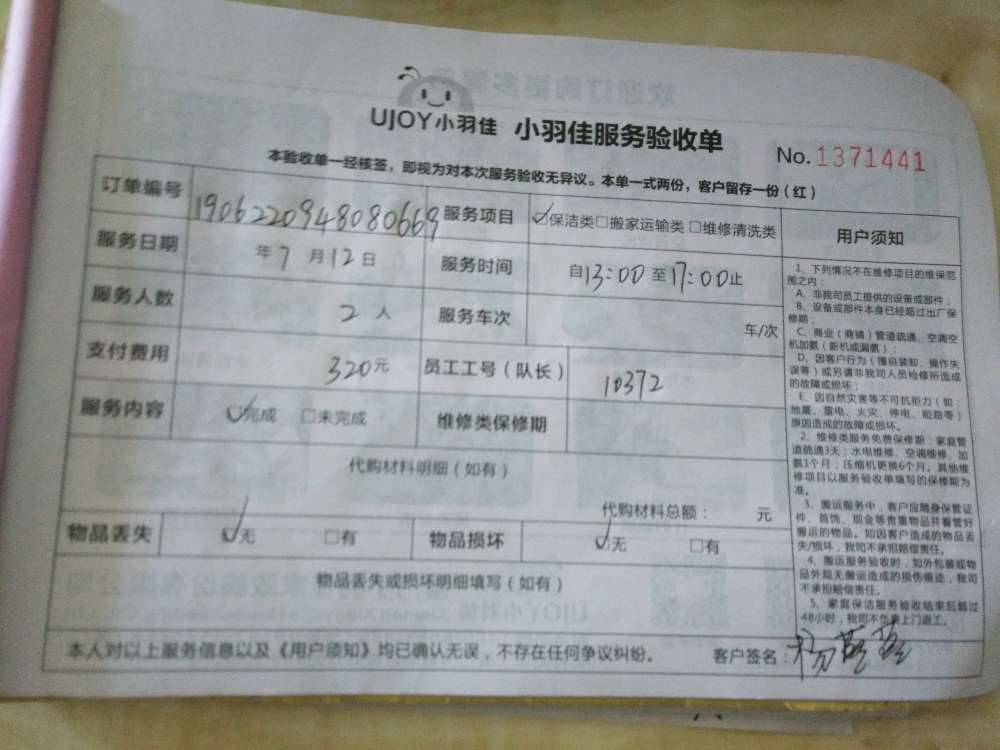 UJOY小羽佳 小羽佳服务验收单
No.1371441
本验收单一经核签，即视为对本次服务验收无异议。本单一式两份，客户留存一份（红）
订单编号 1906220948080669 服务项目 ☑保洁类□搬家运输类 □维修清洗类
服务日期 年7月12日 服务时间 自13:00至17:00止
服务人数 2人 服务车次 车/次
支付费用 320元 员工工号（队长） 10372
服务内容 ☑完成 □未完成 维修类保修期
代购材料明细（如有）
代购材料总额： 元
物品丢失 ☑无 □有 物品损坏 ☑无 □有
物品丢失或损坏明细填写（如有）
本人对以上服务信息以及《用户须知》均已确认无误，不存在任何争议纠纷。 客户签名：
用户须知
1、下列情况不在维修项目的维保范
围之内：
A、非我司员工提供的设备或部件；
B、设备或部件本身已经超过出厂保
修期；
C、商业（商铺）管道疏通、空调空
机加氨（新机或漏氨）；
D、因客户行为（擅自装卸、操作失
误等）或另请非我司人员检修所造成
的故障或损坏；
E、因自然灾害等不可抗拒力（如：
地震、雷电、火灾、停电、短路等）
原因造成的故障或损坏。
2、维修类服务免费保修期：家庭管
道疏通3天；水电维修、空调维修、加
氨1个月；压缩机更换6个月。其他维
修项目以服务验收单填写的保修期为
准。
3、搬运服务中，客户应随身保管证
件、首饰、现金等贵重物品并看管好
搬运的物品。如因客户造成的物品丢
失/损坏，我司不承担赔偿责任。
4、搬运服务验收时，如外包装或物
品外观无搬运造成的损伤痕迹，我司
不承担赔偿责任。
5、家庭保洁服务验收结束后超过
48小时，我司不负责上门返工。